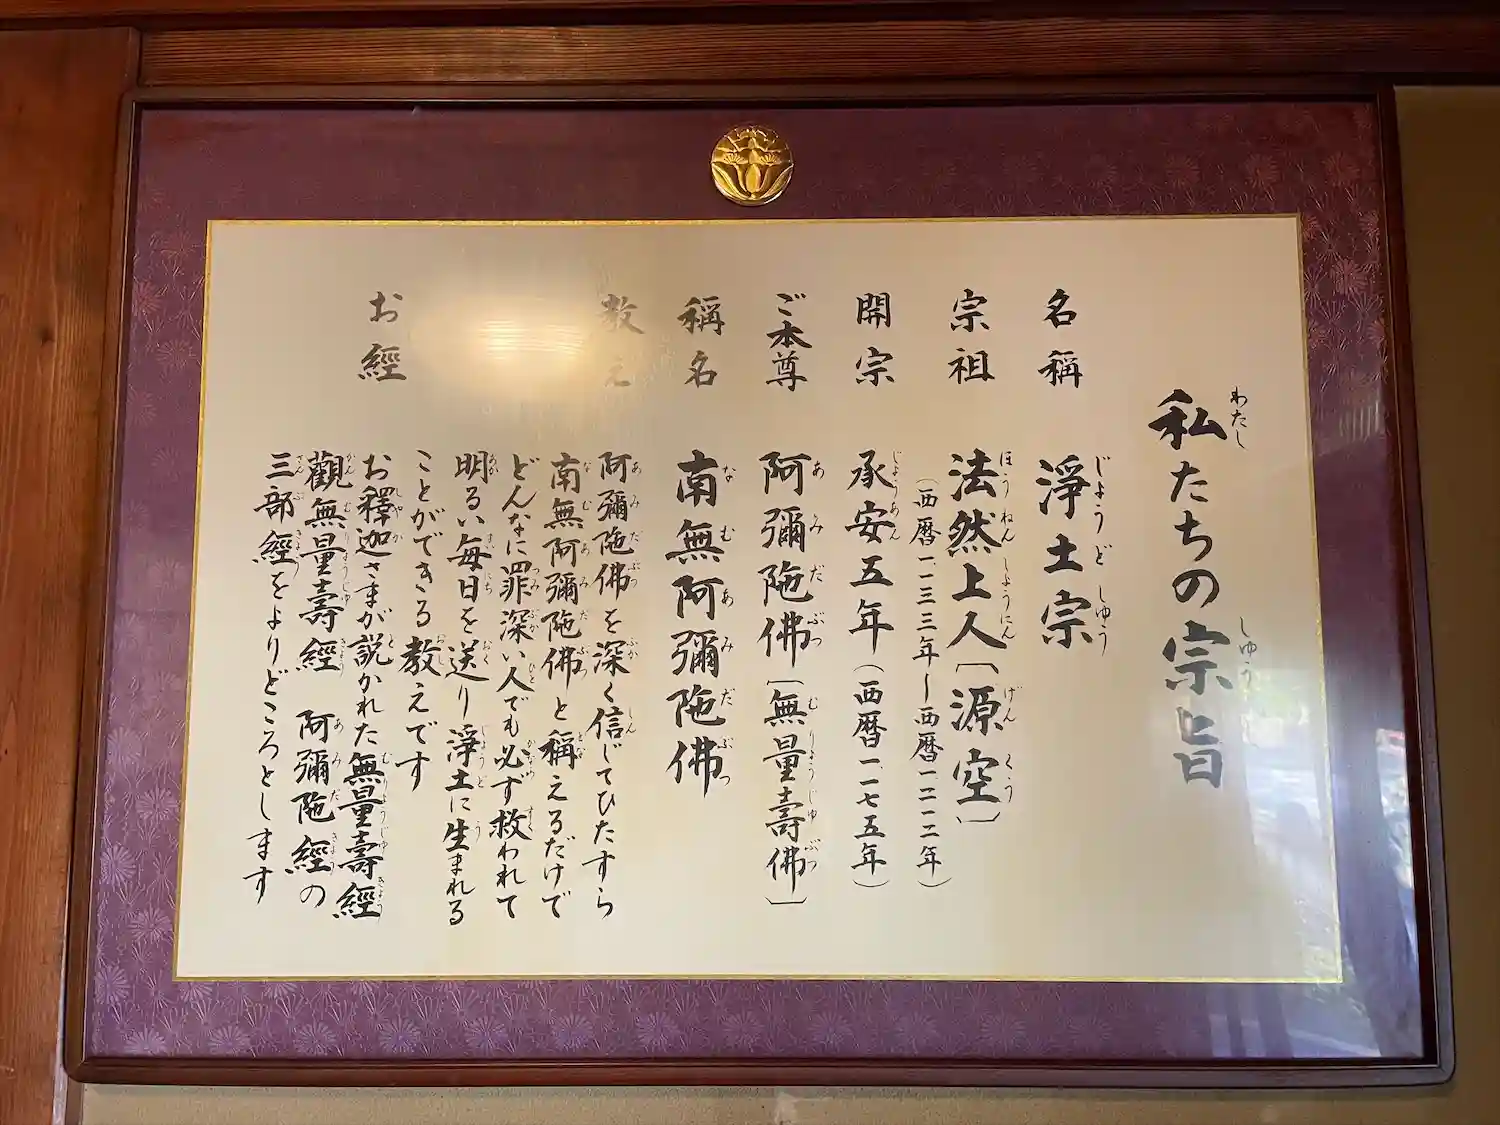 私たちの宗旨
名稱 淨土宗
宗祖 法然上人〔源空〕
（西暦一一三三年〜西暦一二一二年）
開宗 承安五年（西暦一一七五年）
ご本尊 阿彌陁佛〔無量壽佛〕
稱名 南無阿彌陁佛
教え 阿彌陁佛を深く信じてひたすら
南無阿彌陁佛と稱えるだけで
どんなに罪深い人でも必ず救われて
明るい毎日を送り淨土に生まれる
ことができる教えです
お經 お釋迦さまが説かれた無量壽經
觀無量壽經 阿彌陁經の
三部經をよりどころとします